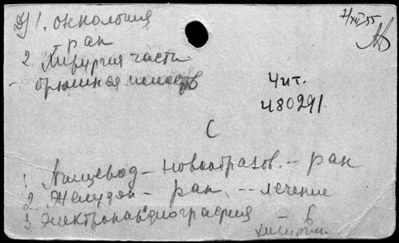 1. онкология
рак
2 Хирургия части
брюшная полость
Чит.
480291
С
1 Пищевод - новообразов. - рак
2 Желудок - рак -- лечение
3 Электрокардиография - в
хирургии